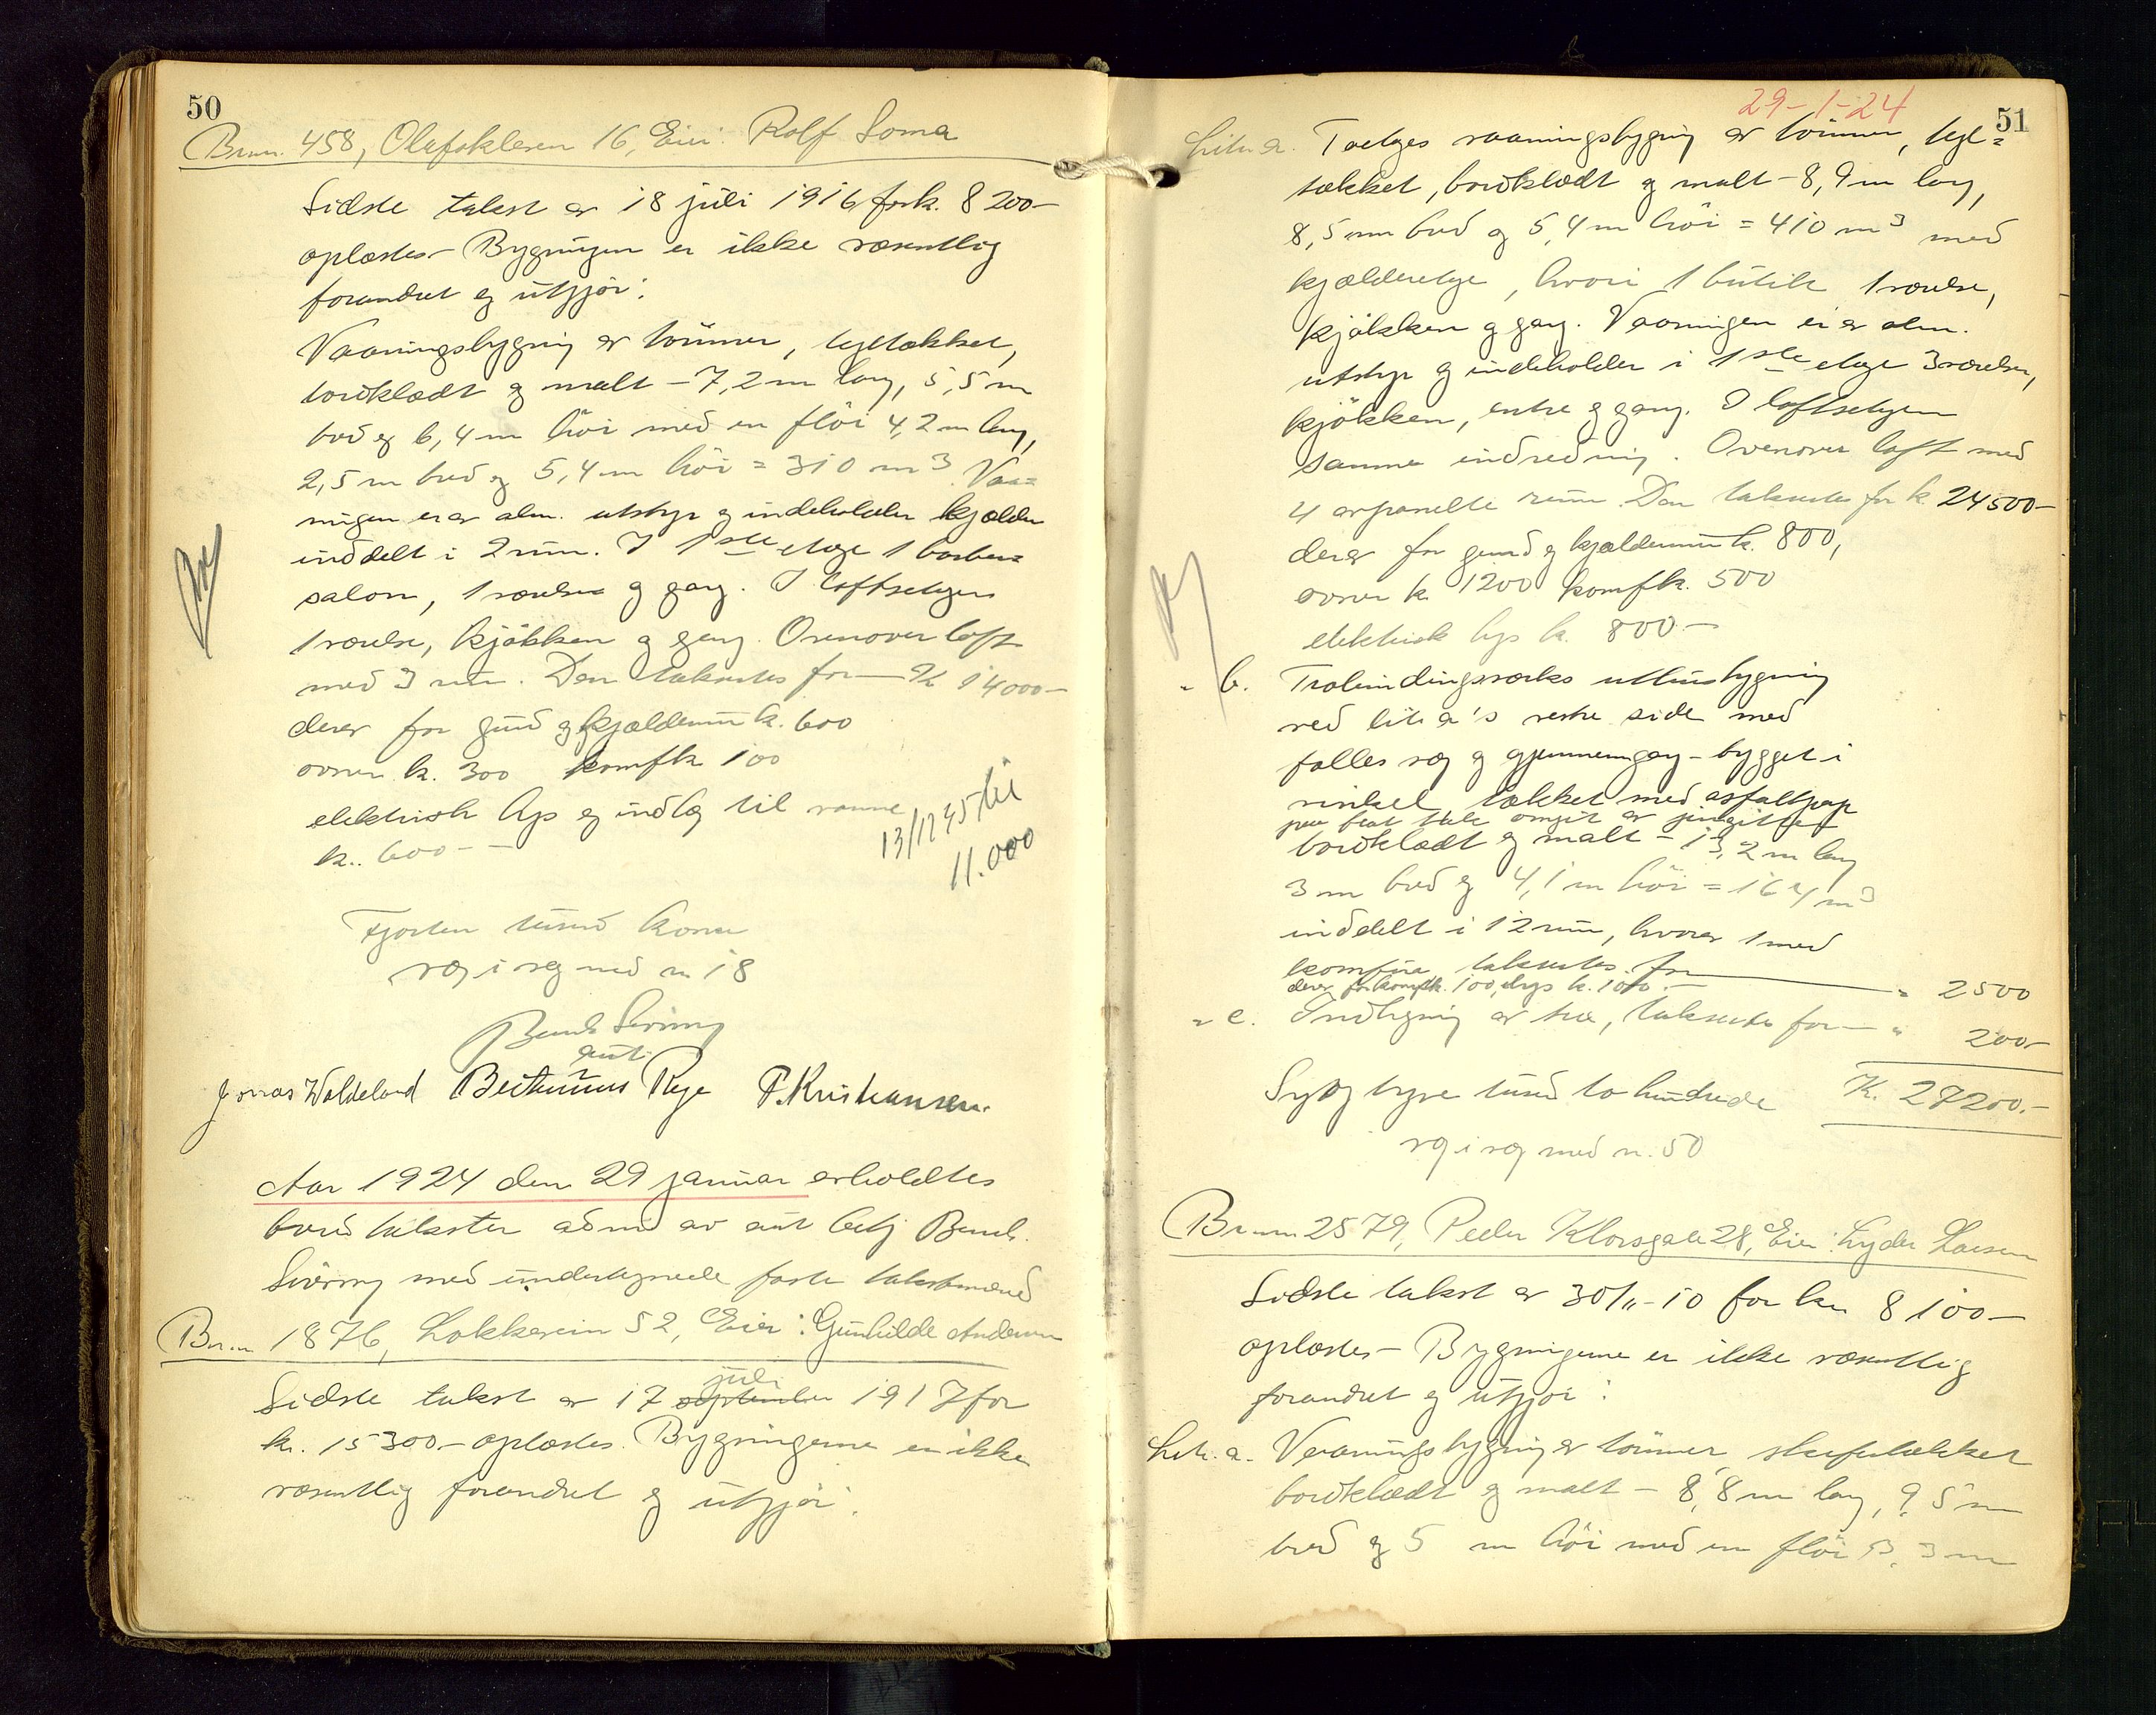 50
Br.nr. 458, Olafskleven 16, Eier: Rolf Soma
Sidste takst av 18 juli 1916 for k. 8200-
oplæstes - Bygningen er ikke væsentlig
forandret og utgjør:
Vaaningsbygning av tømmer, tegltækket,
bordklædt og malt - 7,2 m lang, 5,5 m
bred og 6,4 m høi med en fløi 4,2 m lang,
2,5 m bred og 5,4 m høi = 310 m3. Vaa=
ningen er av alm. utstyr og indeholder kjælder
inddelt i 2 rum. I 1ste etage 1 barber=
salon, 1 værelse og gang. I loftsetagen
1 værelse, kjøkken og gang. Ovenover loft
med 3 rum. Den takseres for — K 14000-
derav for grund og kjældermur k. 600
ovner k. 300 komf k 100
elektrisk lys og indlæg til vann
k. 600--
13/12 45
11.000
Fjorten tusend kroner
væg i væg med nr 18
Bernh Sivring
aut.
Jonas Woldeland Berthinius Rege P. Kristiansen.
Aar 1924 den 29 januar avholdtes
brandtakster adm. av aut betj Bernh.
Sivring med undertegnede faste takstmænd
Br.nr. 1876, Løkkeveien 52, Eier: Gunhilde Andersen
juli
Sidste takst av 17 september 1917 for
kr. 15300- oplæstes. Bygningerne er ikke
væsentlig forandret og utgjør:
29-1-24
51
Litr. a. Toetages vaaningsbygning av tømmer, tegl=
tækket, bordklædt og malt - 8,9 m lang,
8,5 m bred og 5,4 m høi = 410 m3 med
kjælderetage, hvori 1 butik 1 værelse,
kjøkken og gang. Vaaningen er av alm.
utstyr og indeholder i 1ste etage 3 værelser,
kjøkken, entre og gang. I loftsetagen
samme indredning. Ovenover loft med
4 avpanelte rum. Den takseres for k 24500-
derav for grund og kjældermur k. 800,
ovner k. 1200 komf k. 500
elektrisk lys k. 800.-
" b. Trabindingsverks uthusbygning
ved litr a's vestre side med
fælles væg og gjennemgang - bygget i
vinkel, tækket med asfaltpap
paa flat
bordklædt og malt - 13,2 m lang
3 m bred og 4,1 m høi = 164 m3
inddelt i 12 rum, hvorav 1 med
komfur takseres for —
derav for komf k. 100, el lys k. 100.- " 2500
" c. Indhegning av træ, takseres for — " 200-
Syv og tyve tusend to hundrede K. 27200.-
væg i væg med nr. 50
Br.nr. 2579, Peder Klovsgate 28, Eier: Lyder Larsen
Sidste takst av 30/11-10 for kr. 8100-
oplæstes - Bygningerne er ikke væsentlig
forandret og utgjør:
Litr. a. Vaaningsbygning av tømmer, skifertækket
bordklædt og malt - 8,8 m lang, 7,5 m
bred og 5 m høi med en fløi 3,3 m